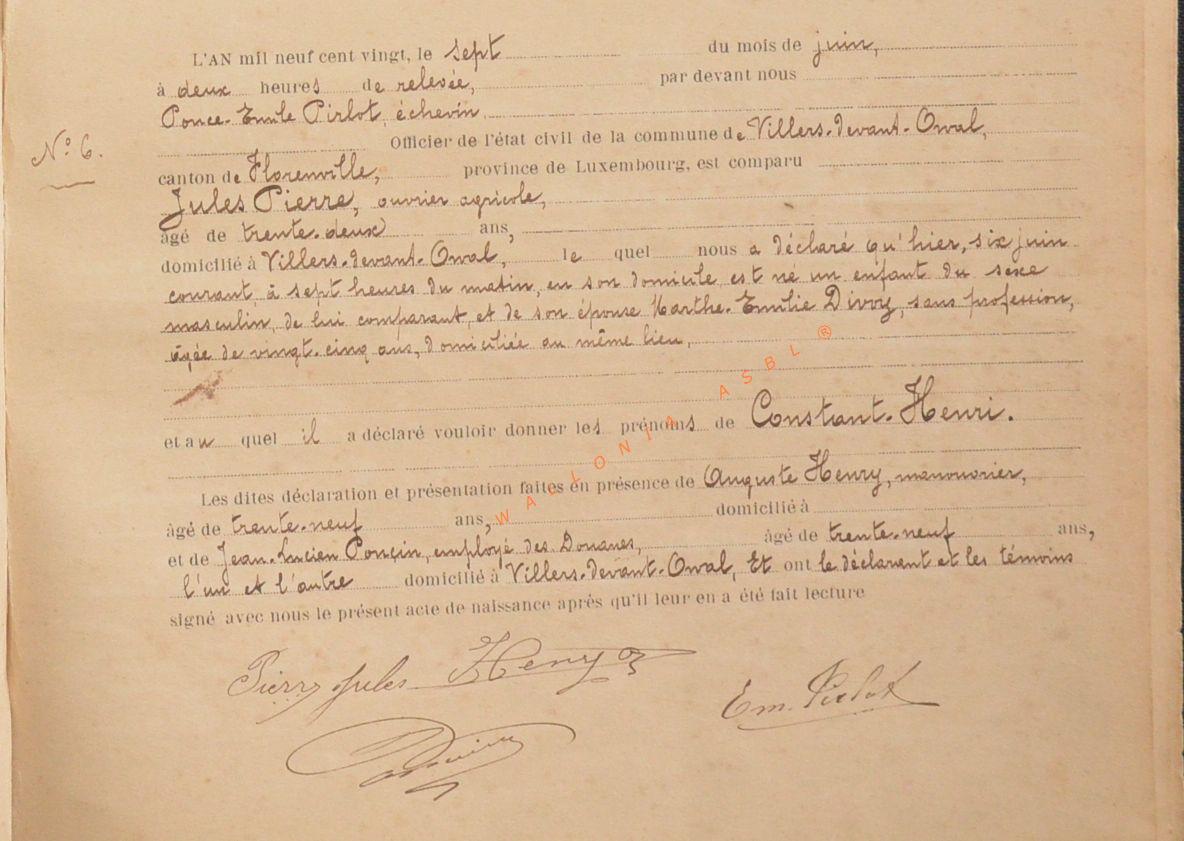 L'AN mil neuf cent vingt, le sept du mois de juin,
à deux heures de relevée, par devant nous
Ponce-Emile Pirlot, échevin
Officier de l'état civil de la commune de Villers-devant-Orval,
N° 6.
canton de Florenville, province de Luxembourg, est comparu
Jules Pierre, ouvrier agricole,
âgé de trente-deux ans,
domicilié à Villers-devant-Orval, le quel nous a déclaré qu'hier, six juin
courant, à sept heures du matin, en son domicile est né un enfant du sexe
masculin, de lui comparant, et de son épouse Marthe-Emilie Divoy, sans profession,
âgée de vingt-cinq ans, domiciliée au même lieu,
et au quel il a déclaré vouloir donner les prénoms de Constant-Henri.
Les dites déclaration et présentation faites en présence de Auguste Henry, manouvrier,
âgé de trente-neuf ans, domicilié à
et de Jean-Lucien Ponçin, employé des Douanes, âgé de trente-neuf ans,
l'un et l'autre domicilié à Villers-devant-Orval, Et ont le déclarent et les témoins
signé avec nous le présent acte de naissance après qu'il leur en a été fait lecture
Pierre Jules Henry
Em. Pirlot
WALLONIA ASBL ®